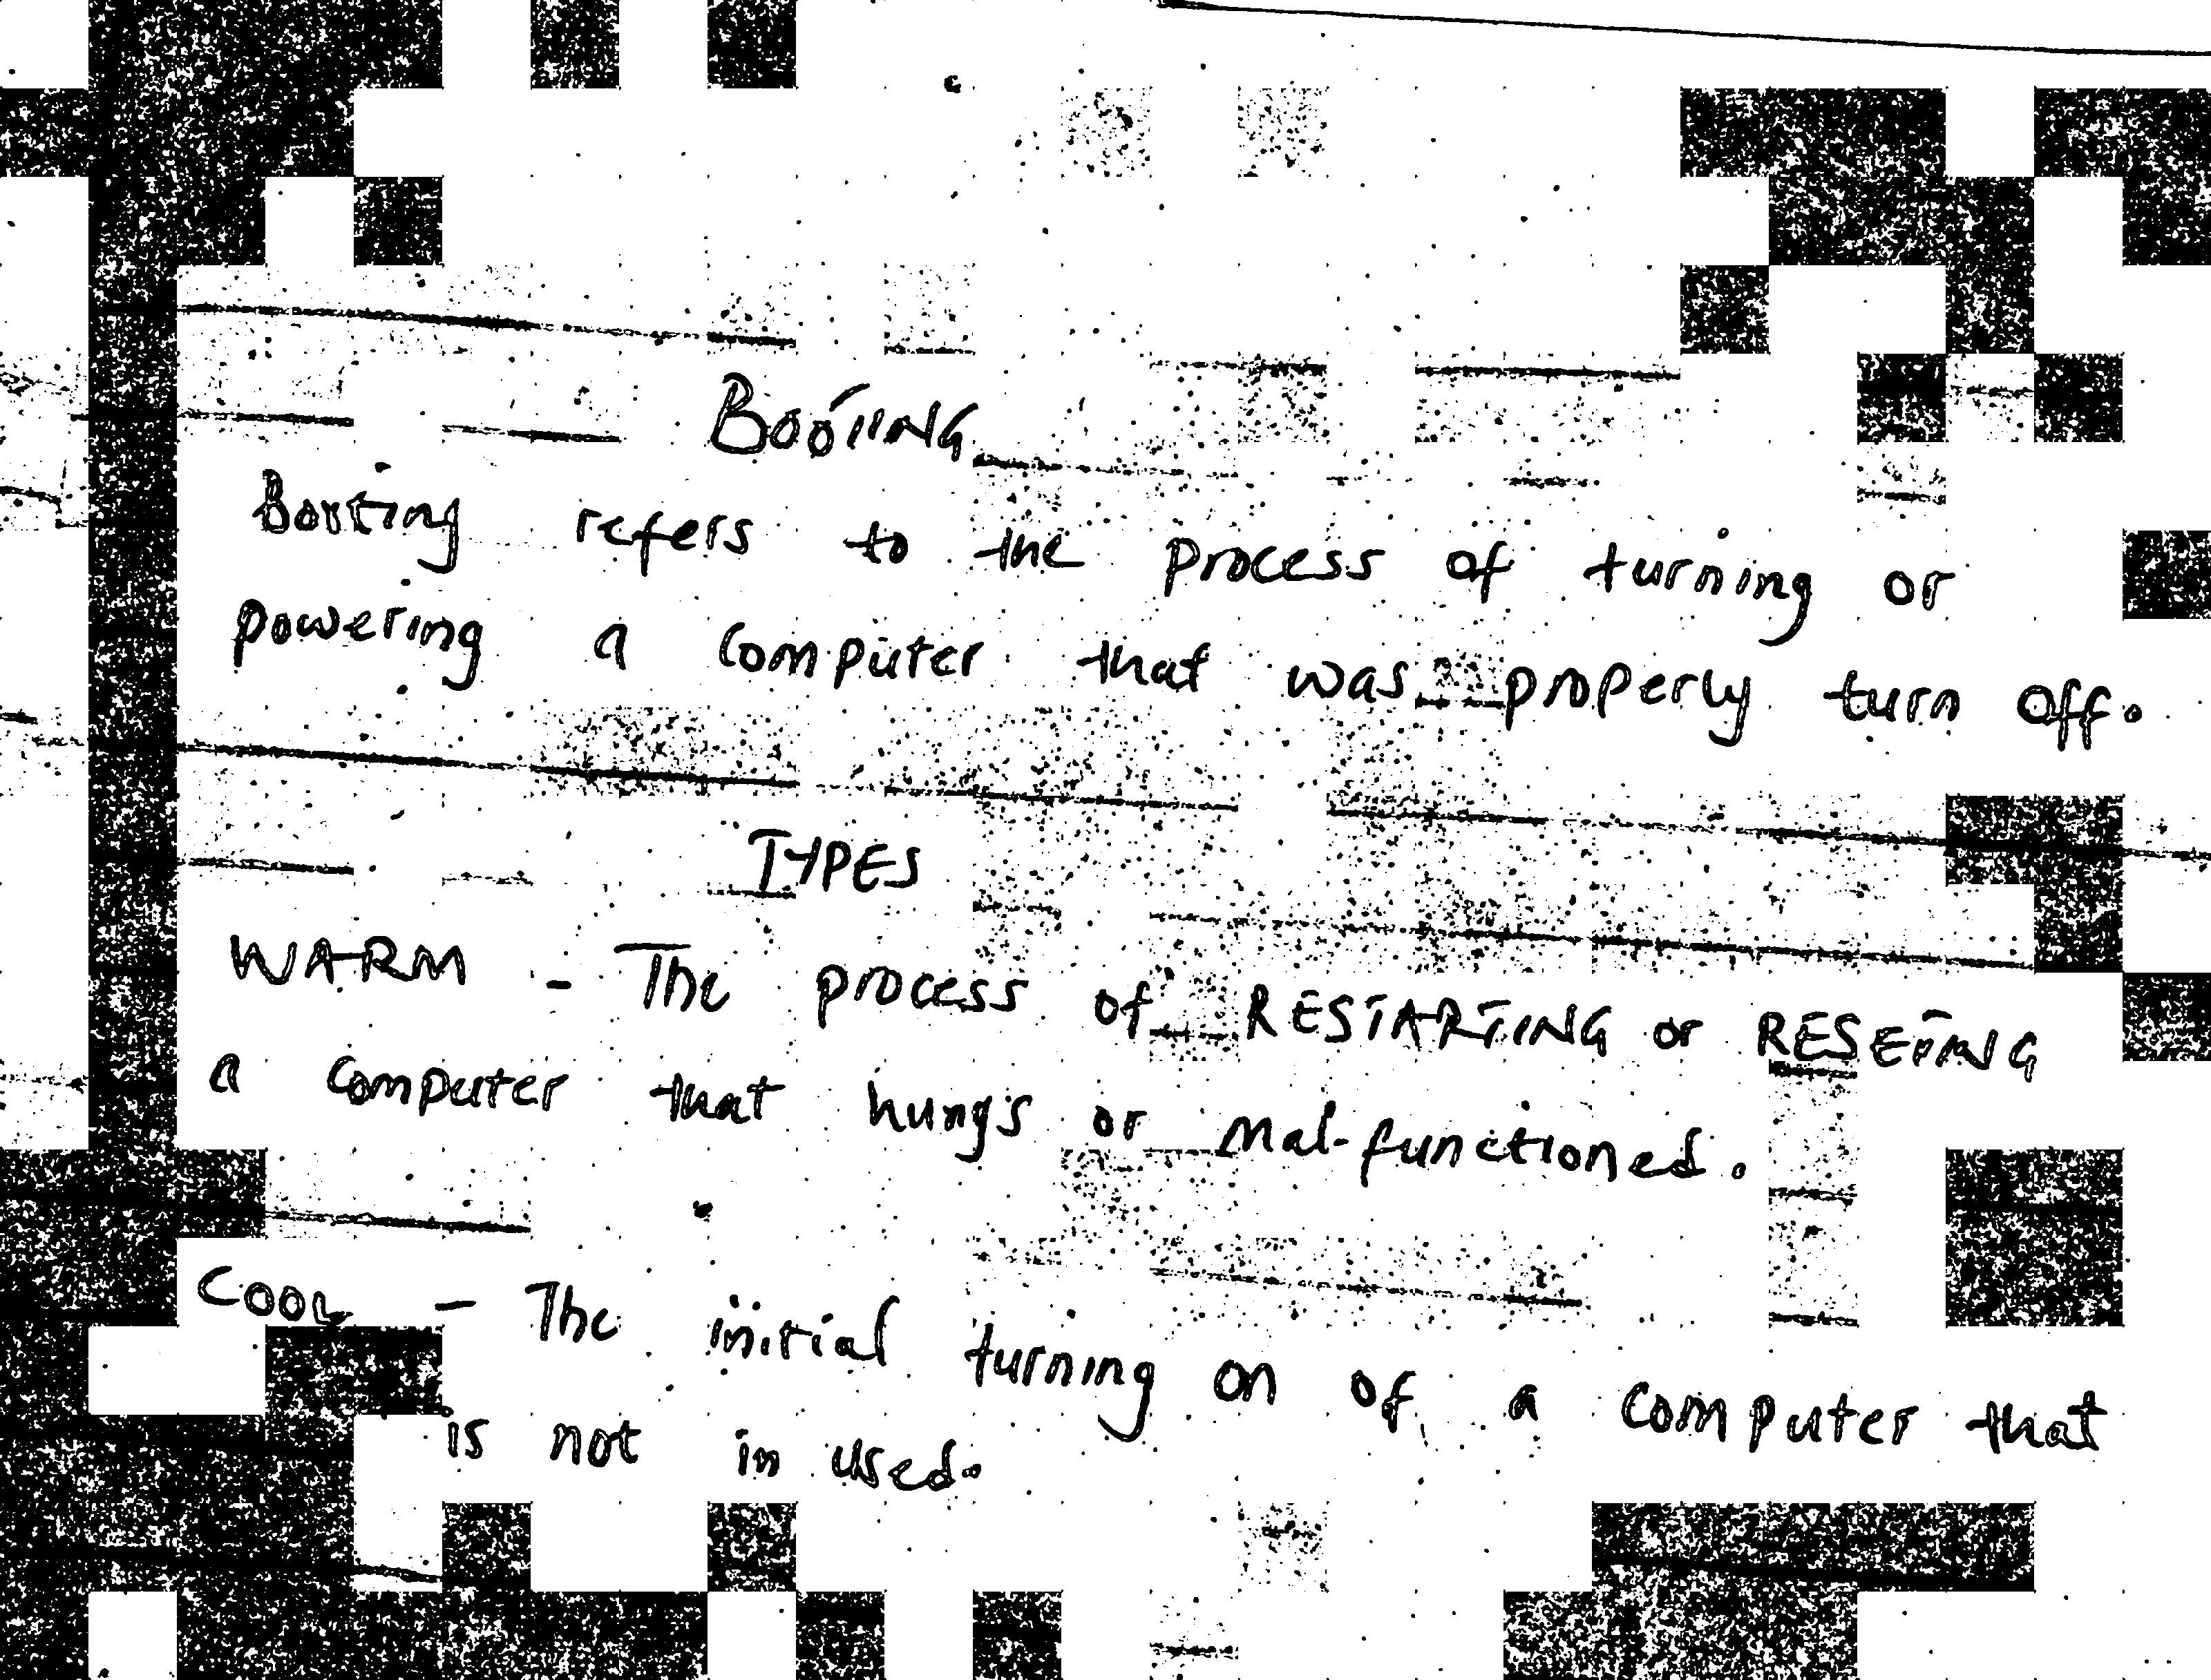 BOOTING
Booting refers to the process of turning or
powering a computer that was properly turn off.
TYPES
WARM - The process of RESTARTING or RESETING
a computer that hungs or mal-functioned.
COOL - The initial turning on of a computer that
is not in used.